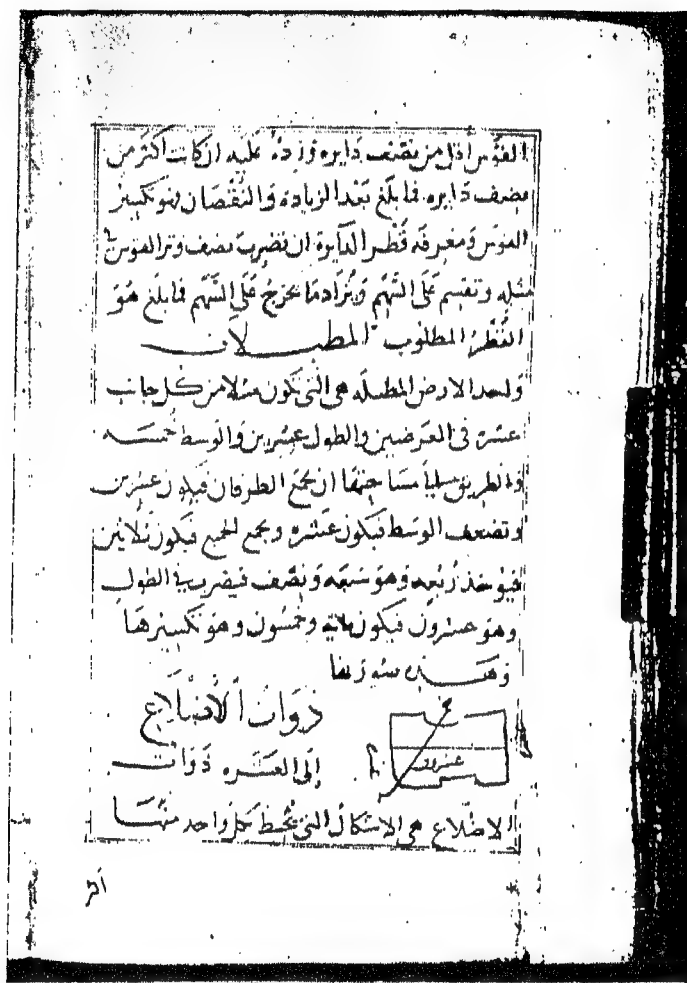 القوس أقل من نصف دايره وزده عليه ان كانت أكثر من
نصف دايره فما بلغ بعد الزيادة والنقصان فهو تكسير
القوس ومعرفه قطر الدايرة ان تضرب نصف وتر القوس في
مثله وتقسم على السهم ويزاد ما يخرج على السهم فما بلغ هو
القطر المطلوب المطبلات
الارض المطبله هى التي تكون مثلا من كل جانب
عشره في العرضين والطول عشرين والوسط خمسه
والطريق مساحتها ان يجمع الطرفان فيكون عشرين
وتضعف الوسط فيكون عشره ويجمع الجميع فيكون ثلاثين
فيوخذ ربعه وهو سبعه ونصف فيضرب في الطول
وهو عشرون فيكون مائه وخمسون وهو تكسيرها
وهذه صورتها
ذوات الأضلاع
عشرون
إلى العشره ذوات
الاضلاع هي الاشكال التي يحيط بكل واحد منها